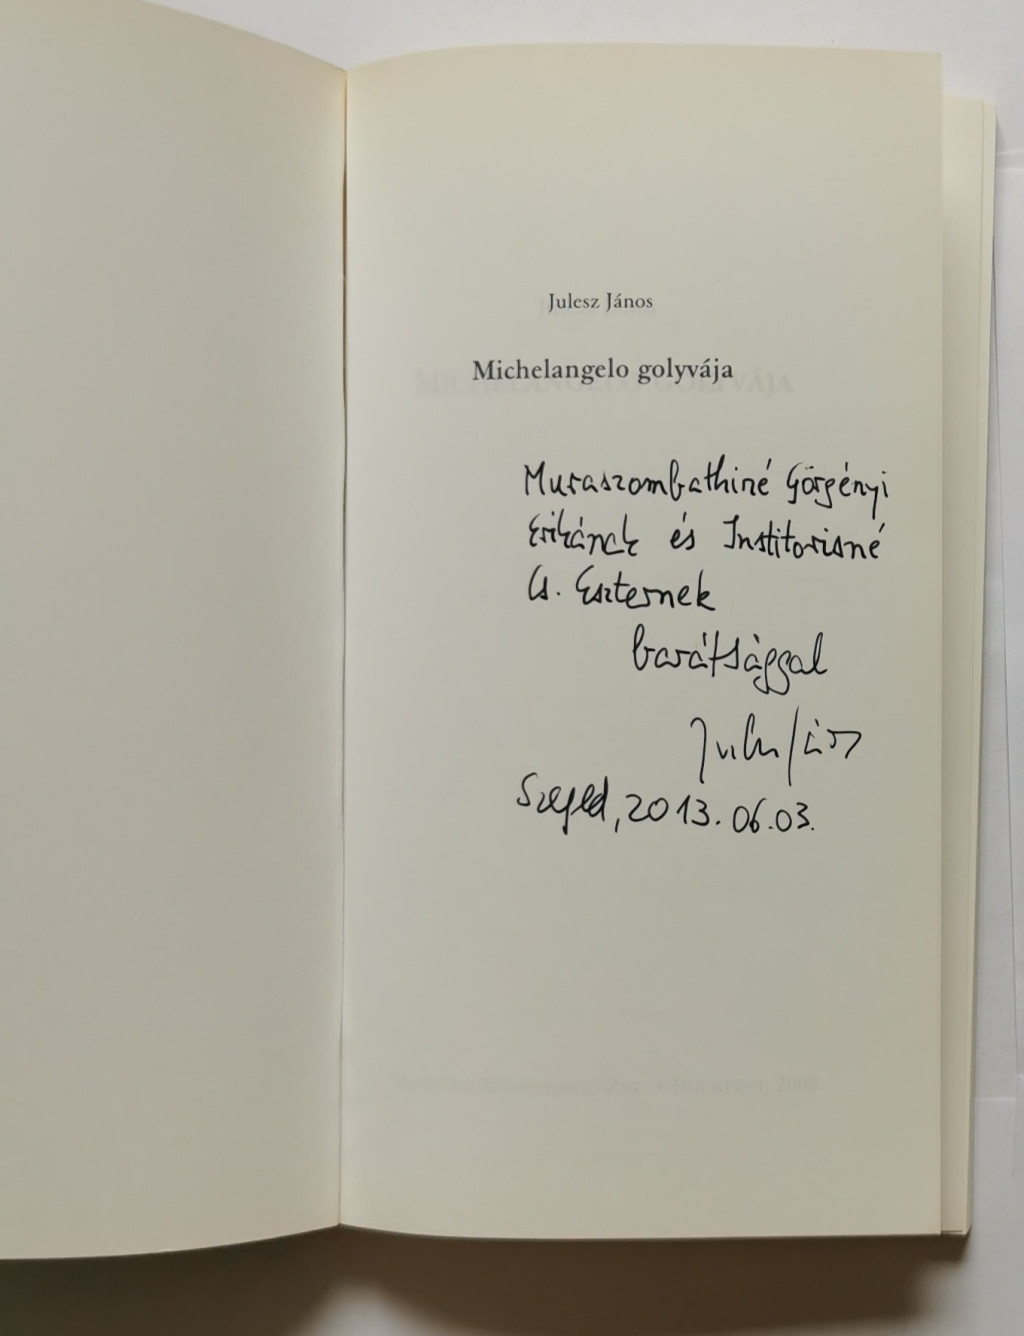 Julesz János
Michelangelo golyvája
Muraszombathiné Görgényi
Erikának és Institorisné
Cs. Eszternek
barátsággal
Julesz János
Szeged, 2013. 06. 03.